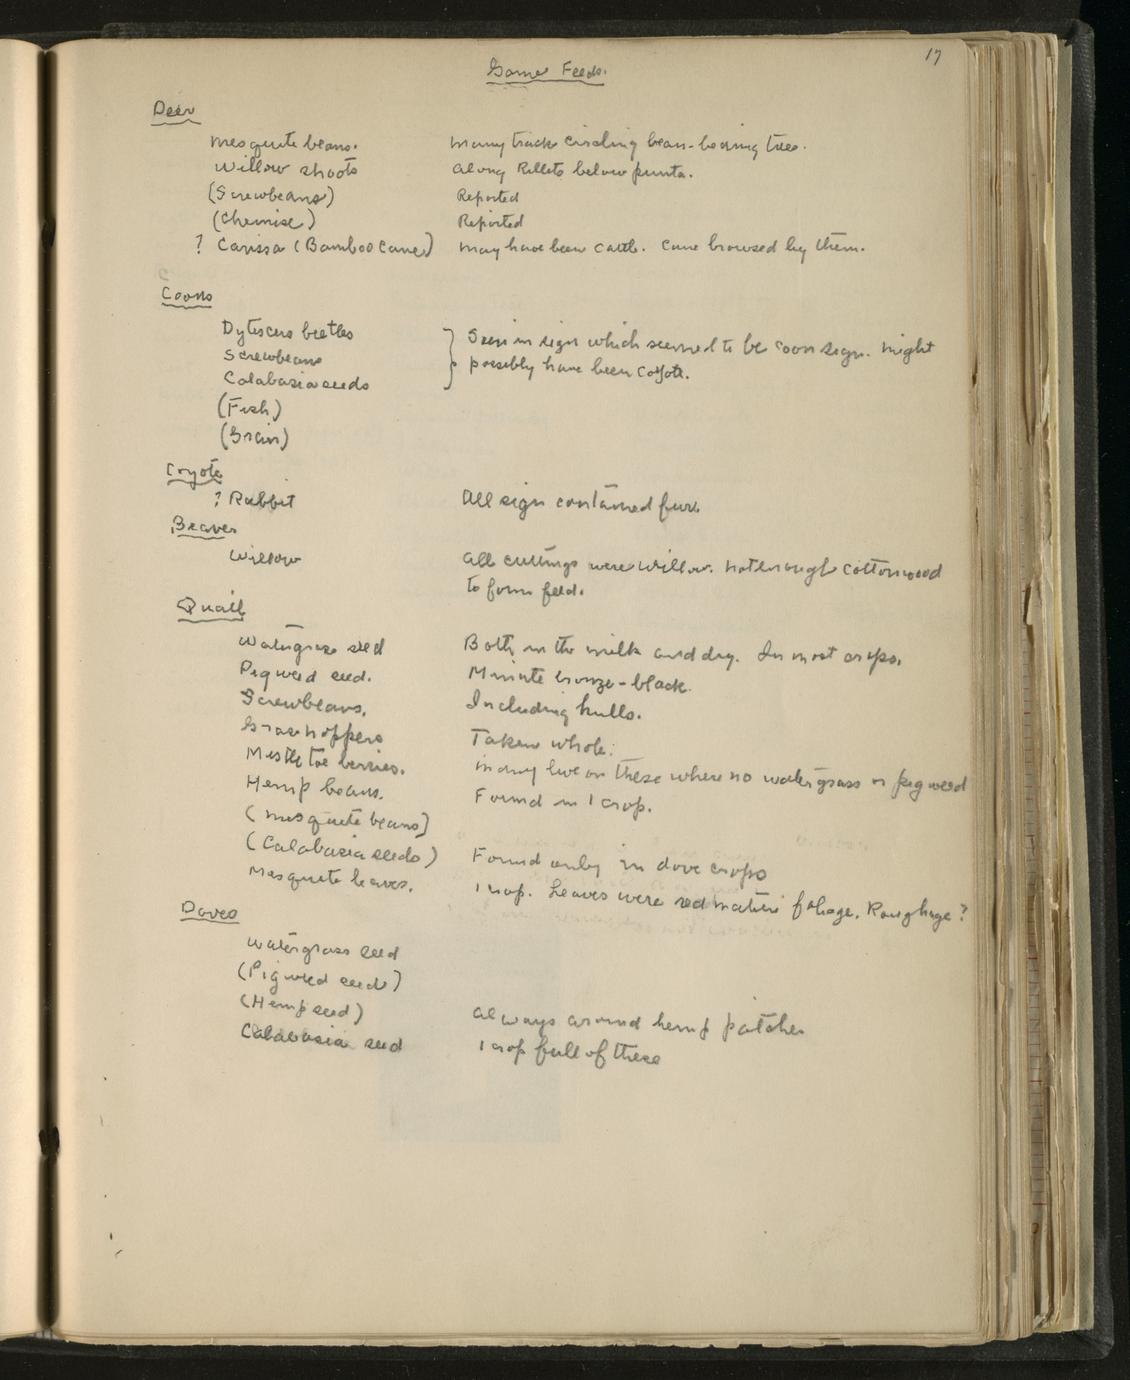 17
Game Feeds.
Deer
Mesquite beans. Many tracks circling bean-bearing trees.
Willow shoots Along Rillito below punta.
(Screwbeans) Reported
(Chemise) Reported
? Carissa (Bamboo Cane) May have been cattle. Cane browsed by them.
Coons
Dytiscus beetles } Seen in sign which seemed to be coon sign. Might
Screwbeans possibly have been coyote.
Calabasia seeds
(Fish)
(Grain)
Coyote
? Rabbit All sign contained fur.
Beaver
Willow All cuttings were willow. Not enough cottonwood
to form feed.
Quail
Watergrass seed Both in the milk and dry. In most crops.
Pigweed seed. Minute bronze-black.
Screwbeans. Including hulls.
Grasshoppers Taken whole.
Mistletoe berries. Many live on these where no watergrass or pigweed
Hemp beans. Found in 1 crop.
(Mesquite beans)
(Calabasia seeds) Found only in dove crops
Mesquite leaves. 1 crop. Leaves were red mature foliage. Roughage?
Doves
Watergrass seed
(Pigweed seeds)
(Hemp seed) Always around hemp patches
Calabasia seed 1 crop full of these